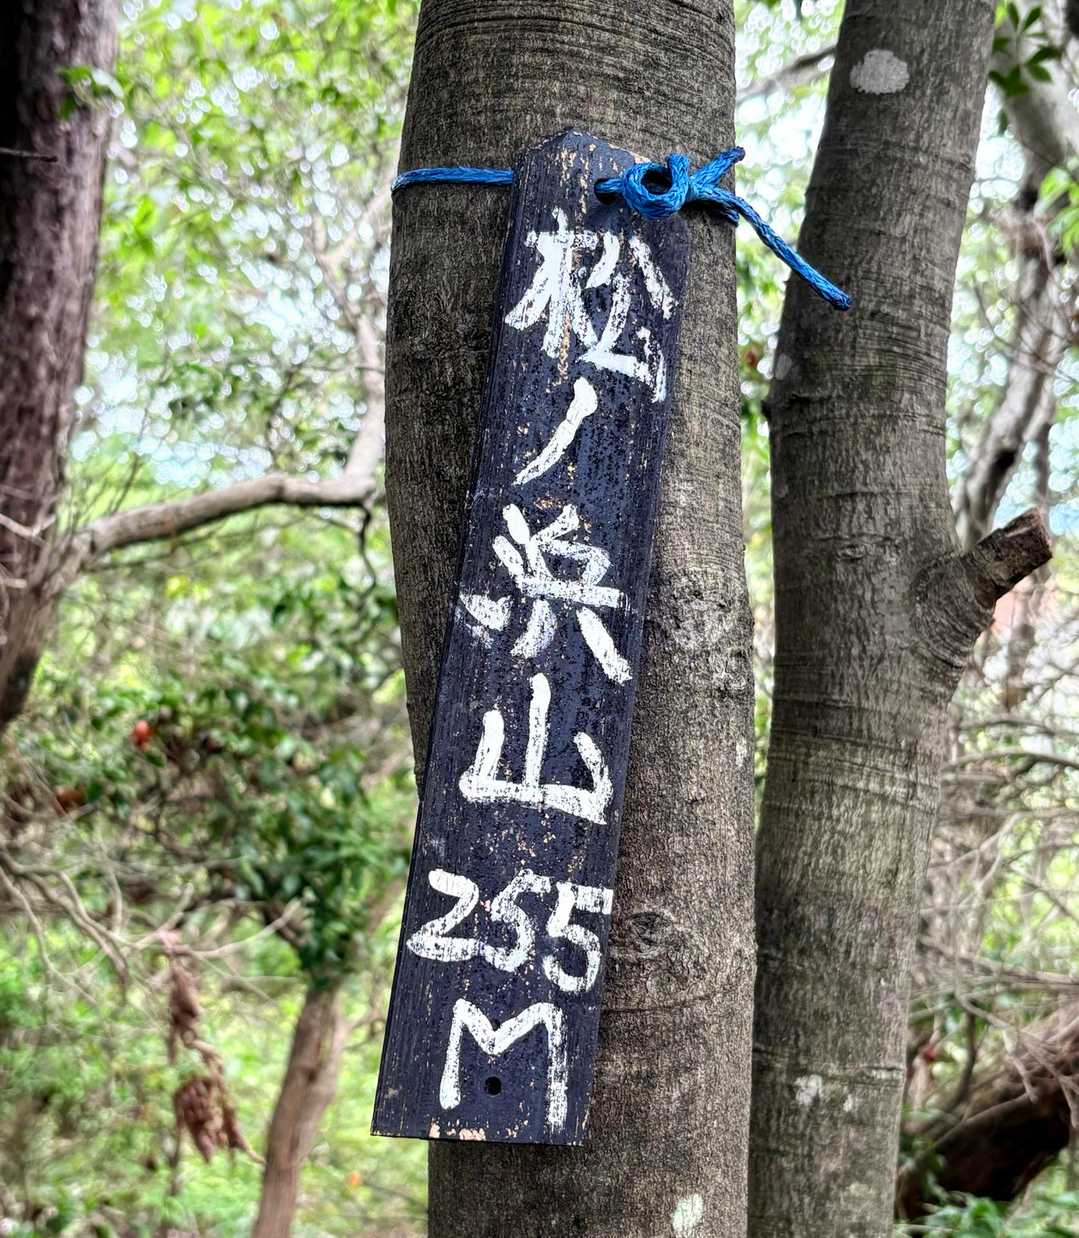 松ノ浜山
255
M